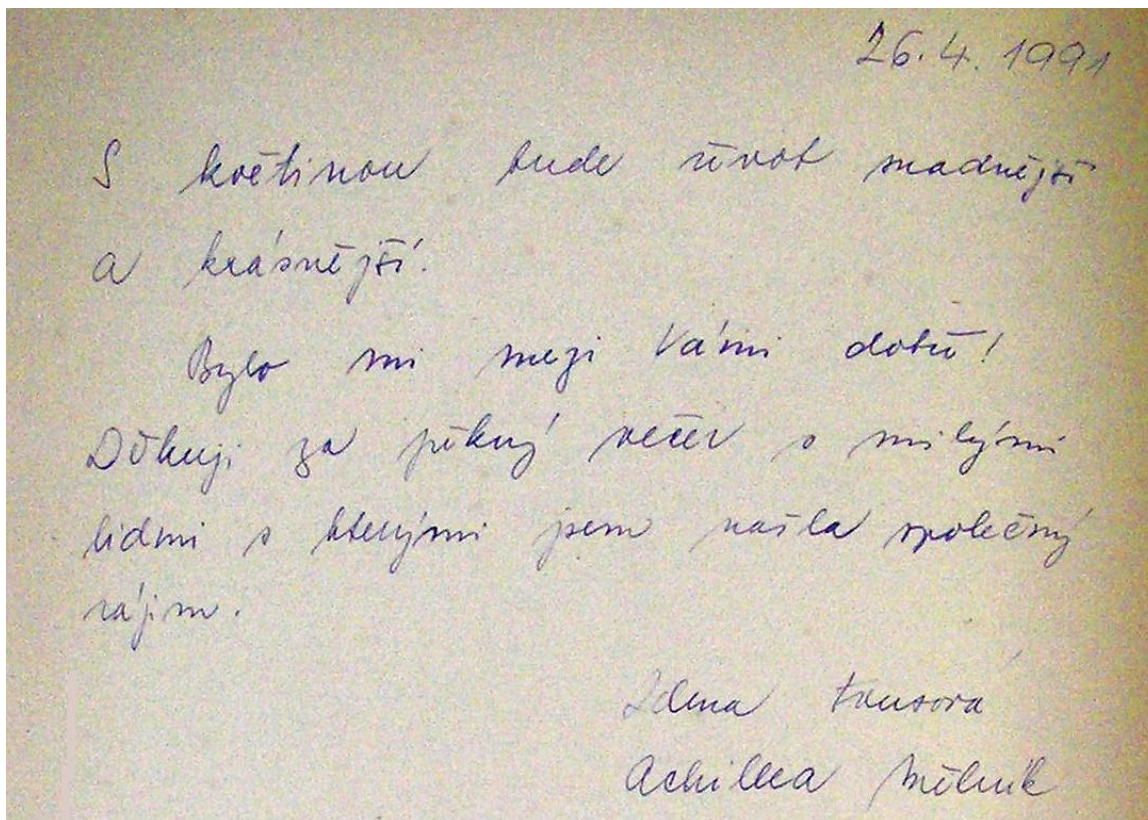 26.4. 1991
S květinou bude život snadnější
a krásnější.
Bylo mi mezi Vámi dobře!
Děkuji za pěkný večer s milými
lidmi s kterými jsem našla společný
zájem.
Zdena
Achillea Mělník